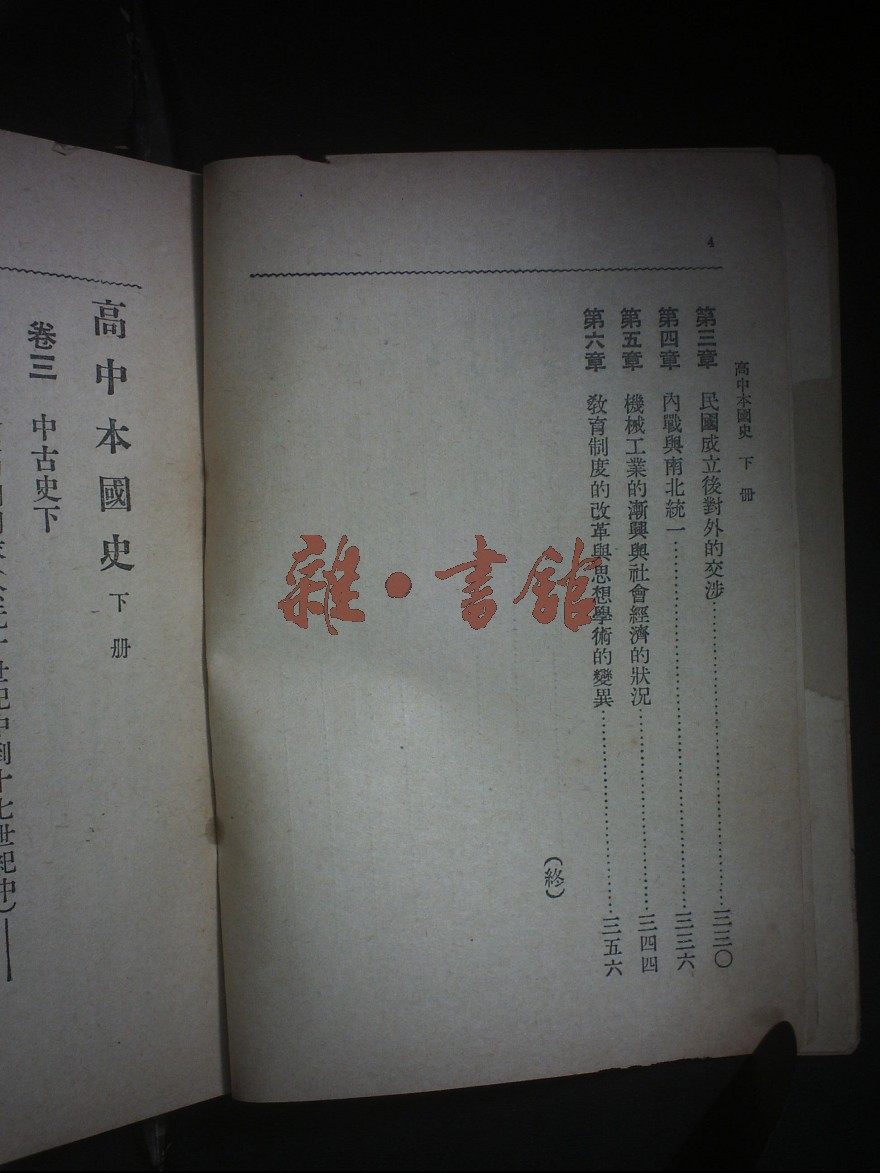 4
高中本國史 下冊
第三章 民國成立後對外的交涉……三三〇
第四章 內戰與南北統一……三三六
第五章 機械工業的漸興與社會經濟的狀況……三四四
第六章 教育制度的改革與思想學術的變異……三五六
(終)
雜·書館
高中本國史 下册
卷三 中古史下
世紀中到十七世紀中)——